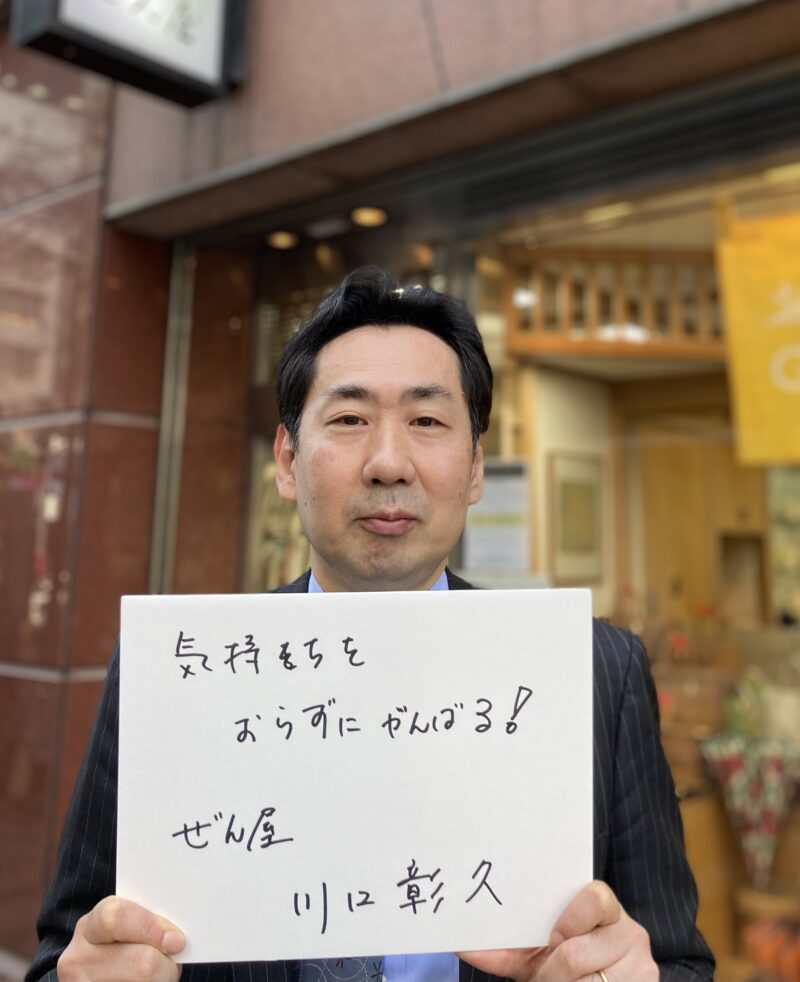 気持ちを
おらずにがんばる!
ぜん屋
川口彰久